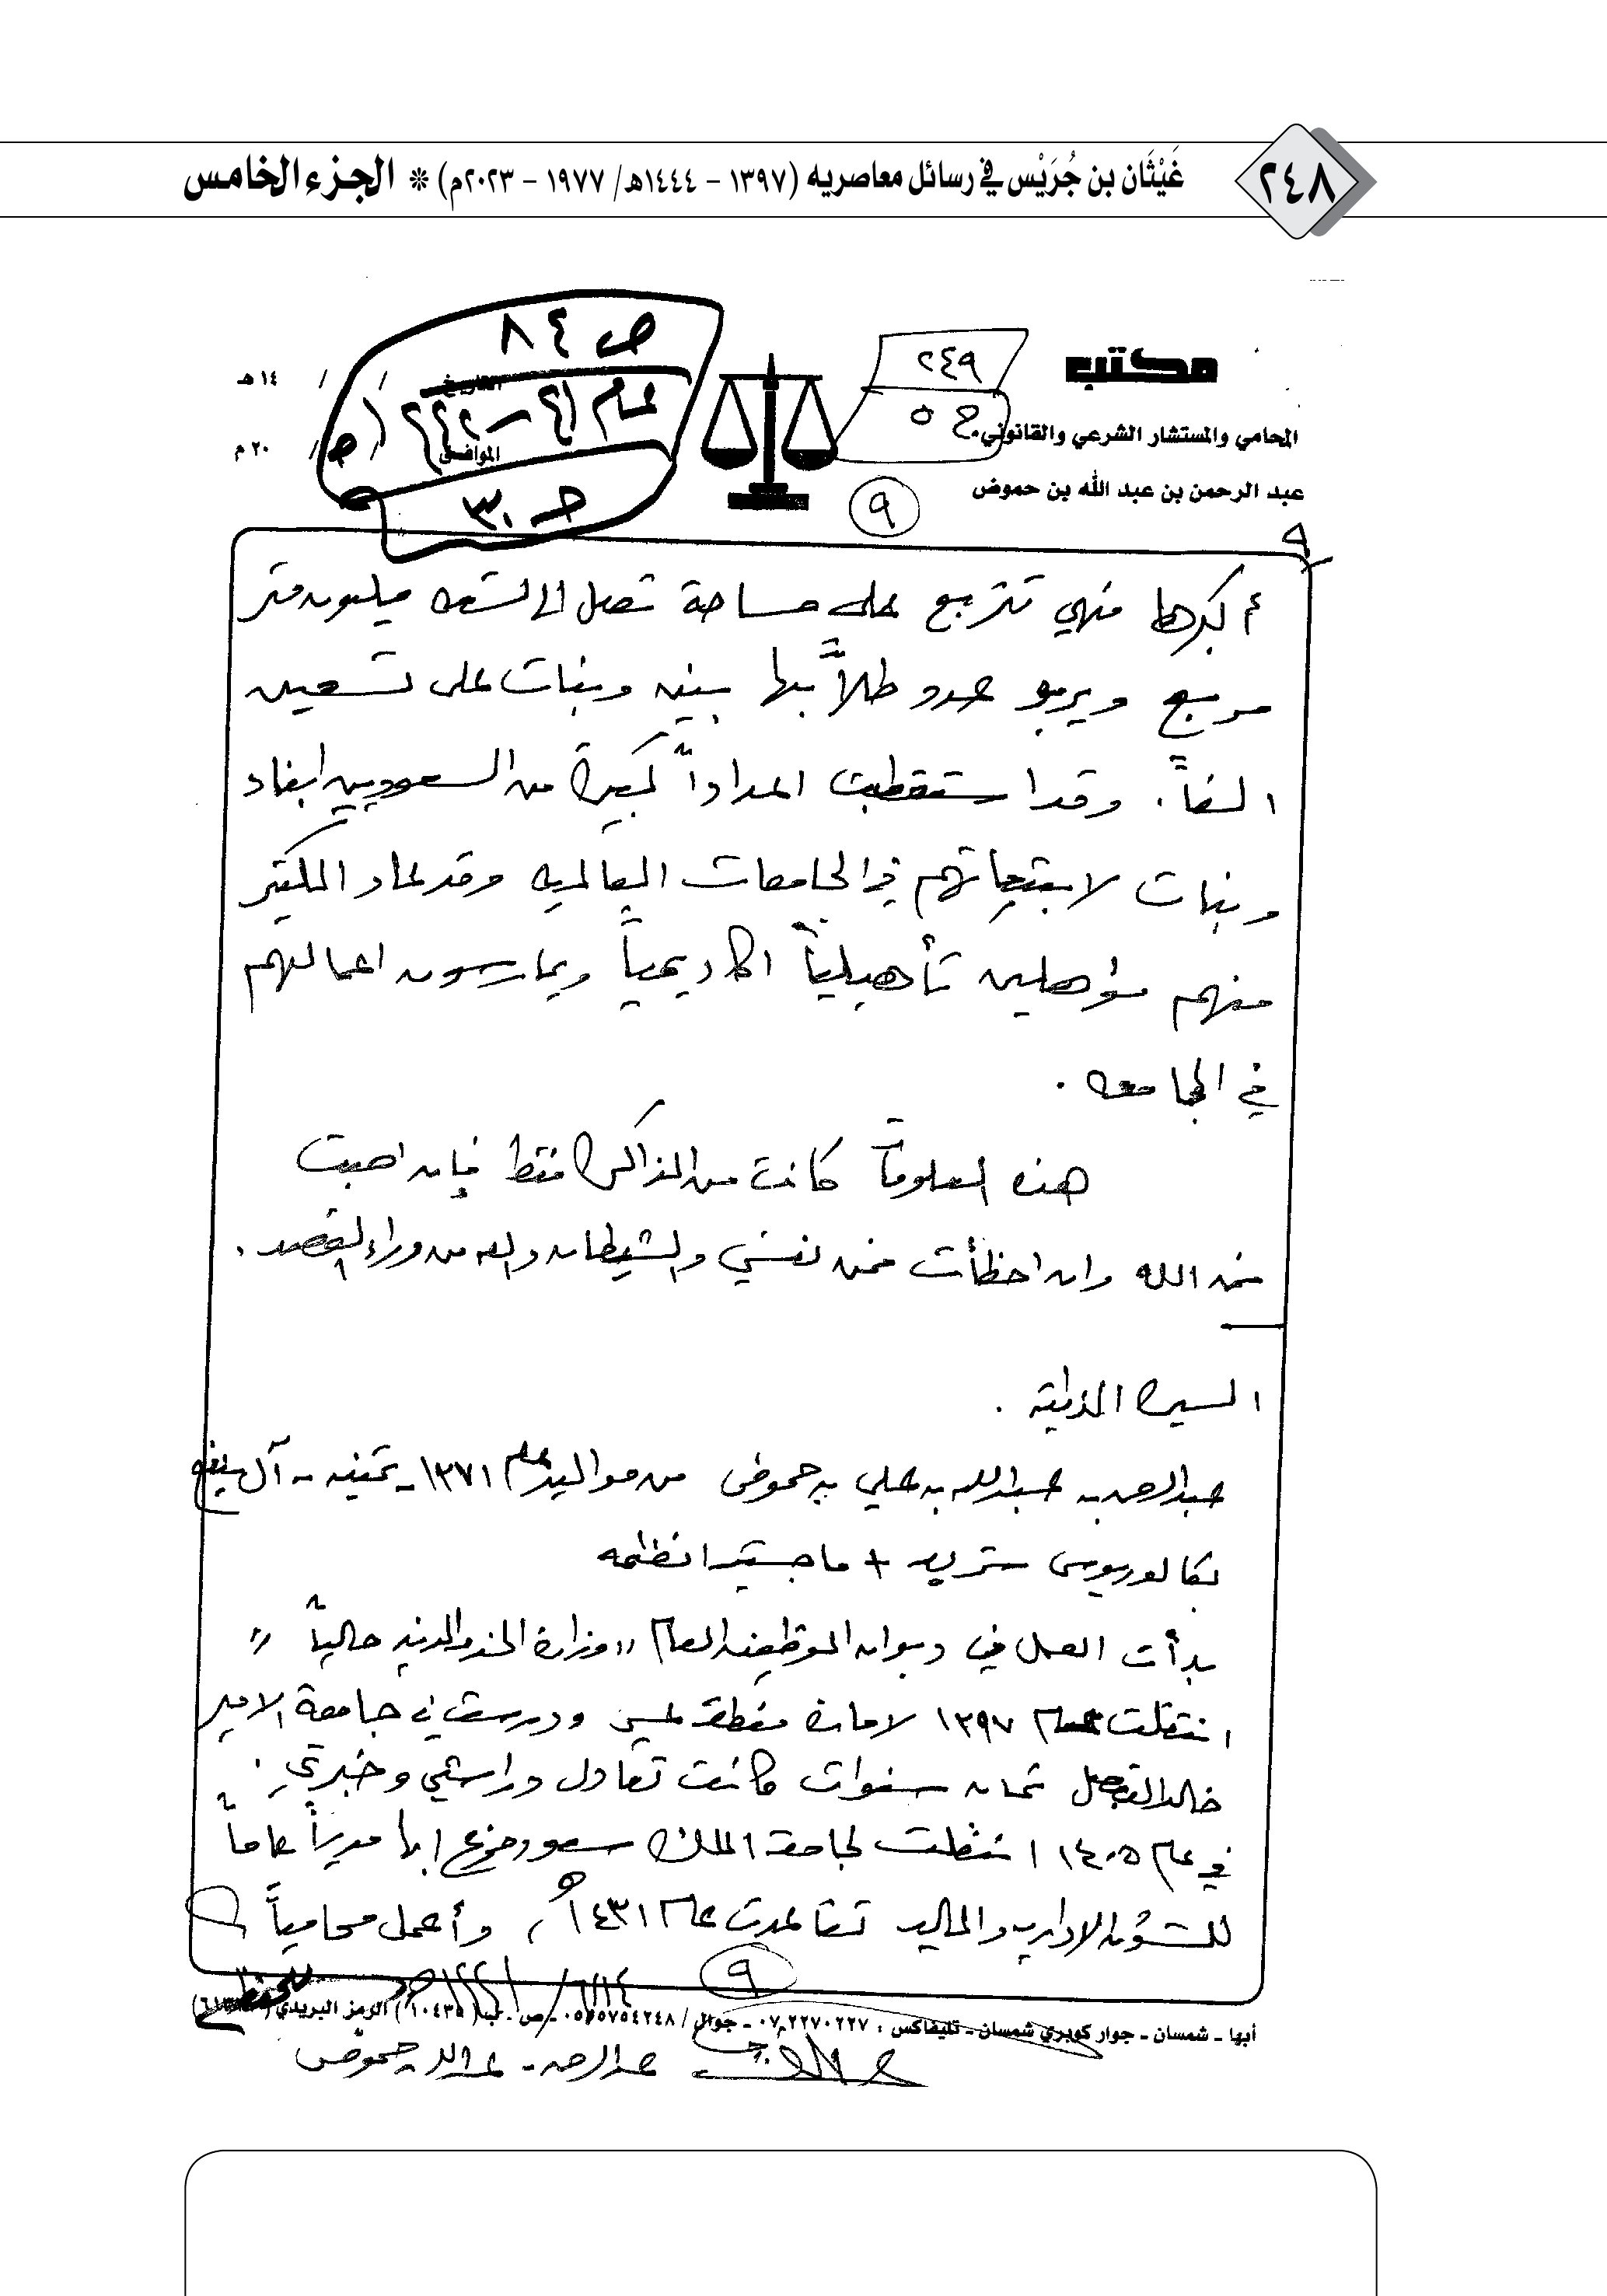 ٢٤٨
غَيْثَان بن جُرَيْس في رسائل معاصريه (١٣٩٧ - ١٤٤٤هـ/ ١٩٧٧ - ٢٠٢٣م) * الجزء الخامس
مكتب
المحامي والمستشار الشرعي والقانوني
عبد الرحمن بن عبد الله بن حموض
٢٤٩
ح ٥
٩
ص ٨٤
عام
ح ٣٠
التاريخ / / ١٤هـ
الموافق / / ٢٠م
٩
أكبرها فهي تتربع على مساحة تصل الى تسعه مليون متر
مربع ويربو عدد طلاَّبها بنين وبنات على تسعين
الفاً. وقد استقطبت اعداداً كبيرة من السعوديين ابناء
وبنات لابتعاثهم في الجامعات العالميه وقد عاد الكثير
منهم مؤهلين تأهيلياً اكاديمياً ويمارسون اعمالهم
في الجامعه .
هذه المعلومات كانت من الذاكره فقط فإن اصبت
فمن الله وان اخطأت فمن نفسي والشيطان والله من وراء القصد .
السيره الذاتية .
عبدالرحمن بن عبدالله بن علي بن حموض من مواليد عام ١٣٧١ - تمنيه - آل ينفع
بكالوريوس شريعه + ماجستير انظمه
بدأت العمل في ديوان الموظفين العام "وزارة الخدمه المدنيه حالياً"
انتقلت عام ١٣٩٧ لامارة منطقة عسير ودرست في جامعة الامير
خالد الفيصل ثمان سنوات كانت تعادل دراستي وخبرتي .
في عام ١٤٠٥ انتقلت لجامعة الملك سعود فرع ابها مديراً عاماً
للشؤون الاداريه والماليه تقاعدت عام ١٤٣١هـ، وأعمل محامياً
٩
للحفظ
أبها - شمسان - جوار كوبري شمسان - تليفاكس : ٠٧٢٢٧٠٢٢٧ - جوال / ٠٥٠٥٧٥٤٢٤٨ - ص . ب ( ١٠٤٣٥ ) الرمز البريدي
عبدالرحمن - عبدالله حموض